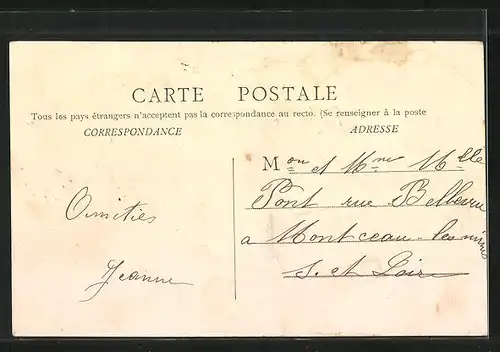 CARTE POSTALE
Tous les pays étrangers n'acceptent pas la correspondance au recto. (Se renseigner à la poste
CORRESPONDANCE
ADRESSE
Mon et Mme Mlle
Pont rue Bellevue
Amitiés
a Montceau-les-mines
Jeanne
S. et Loire